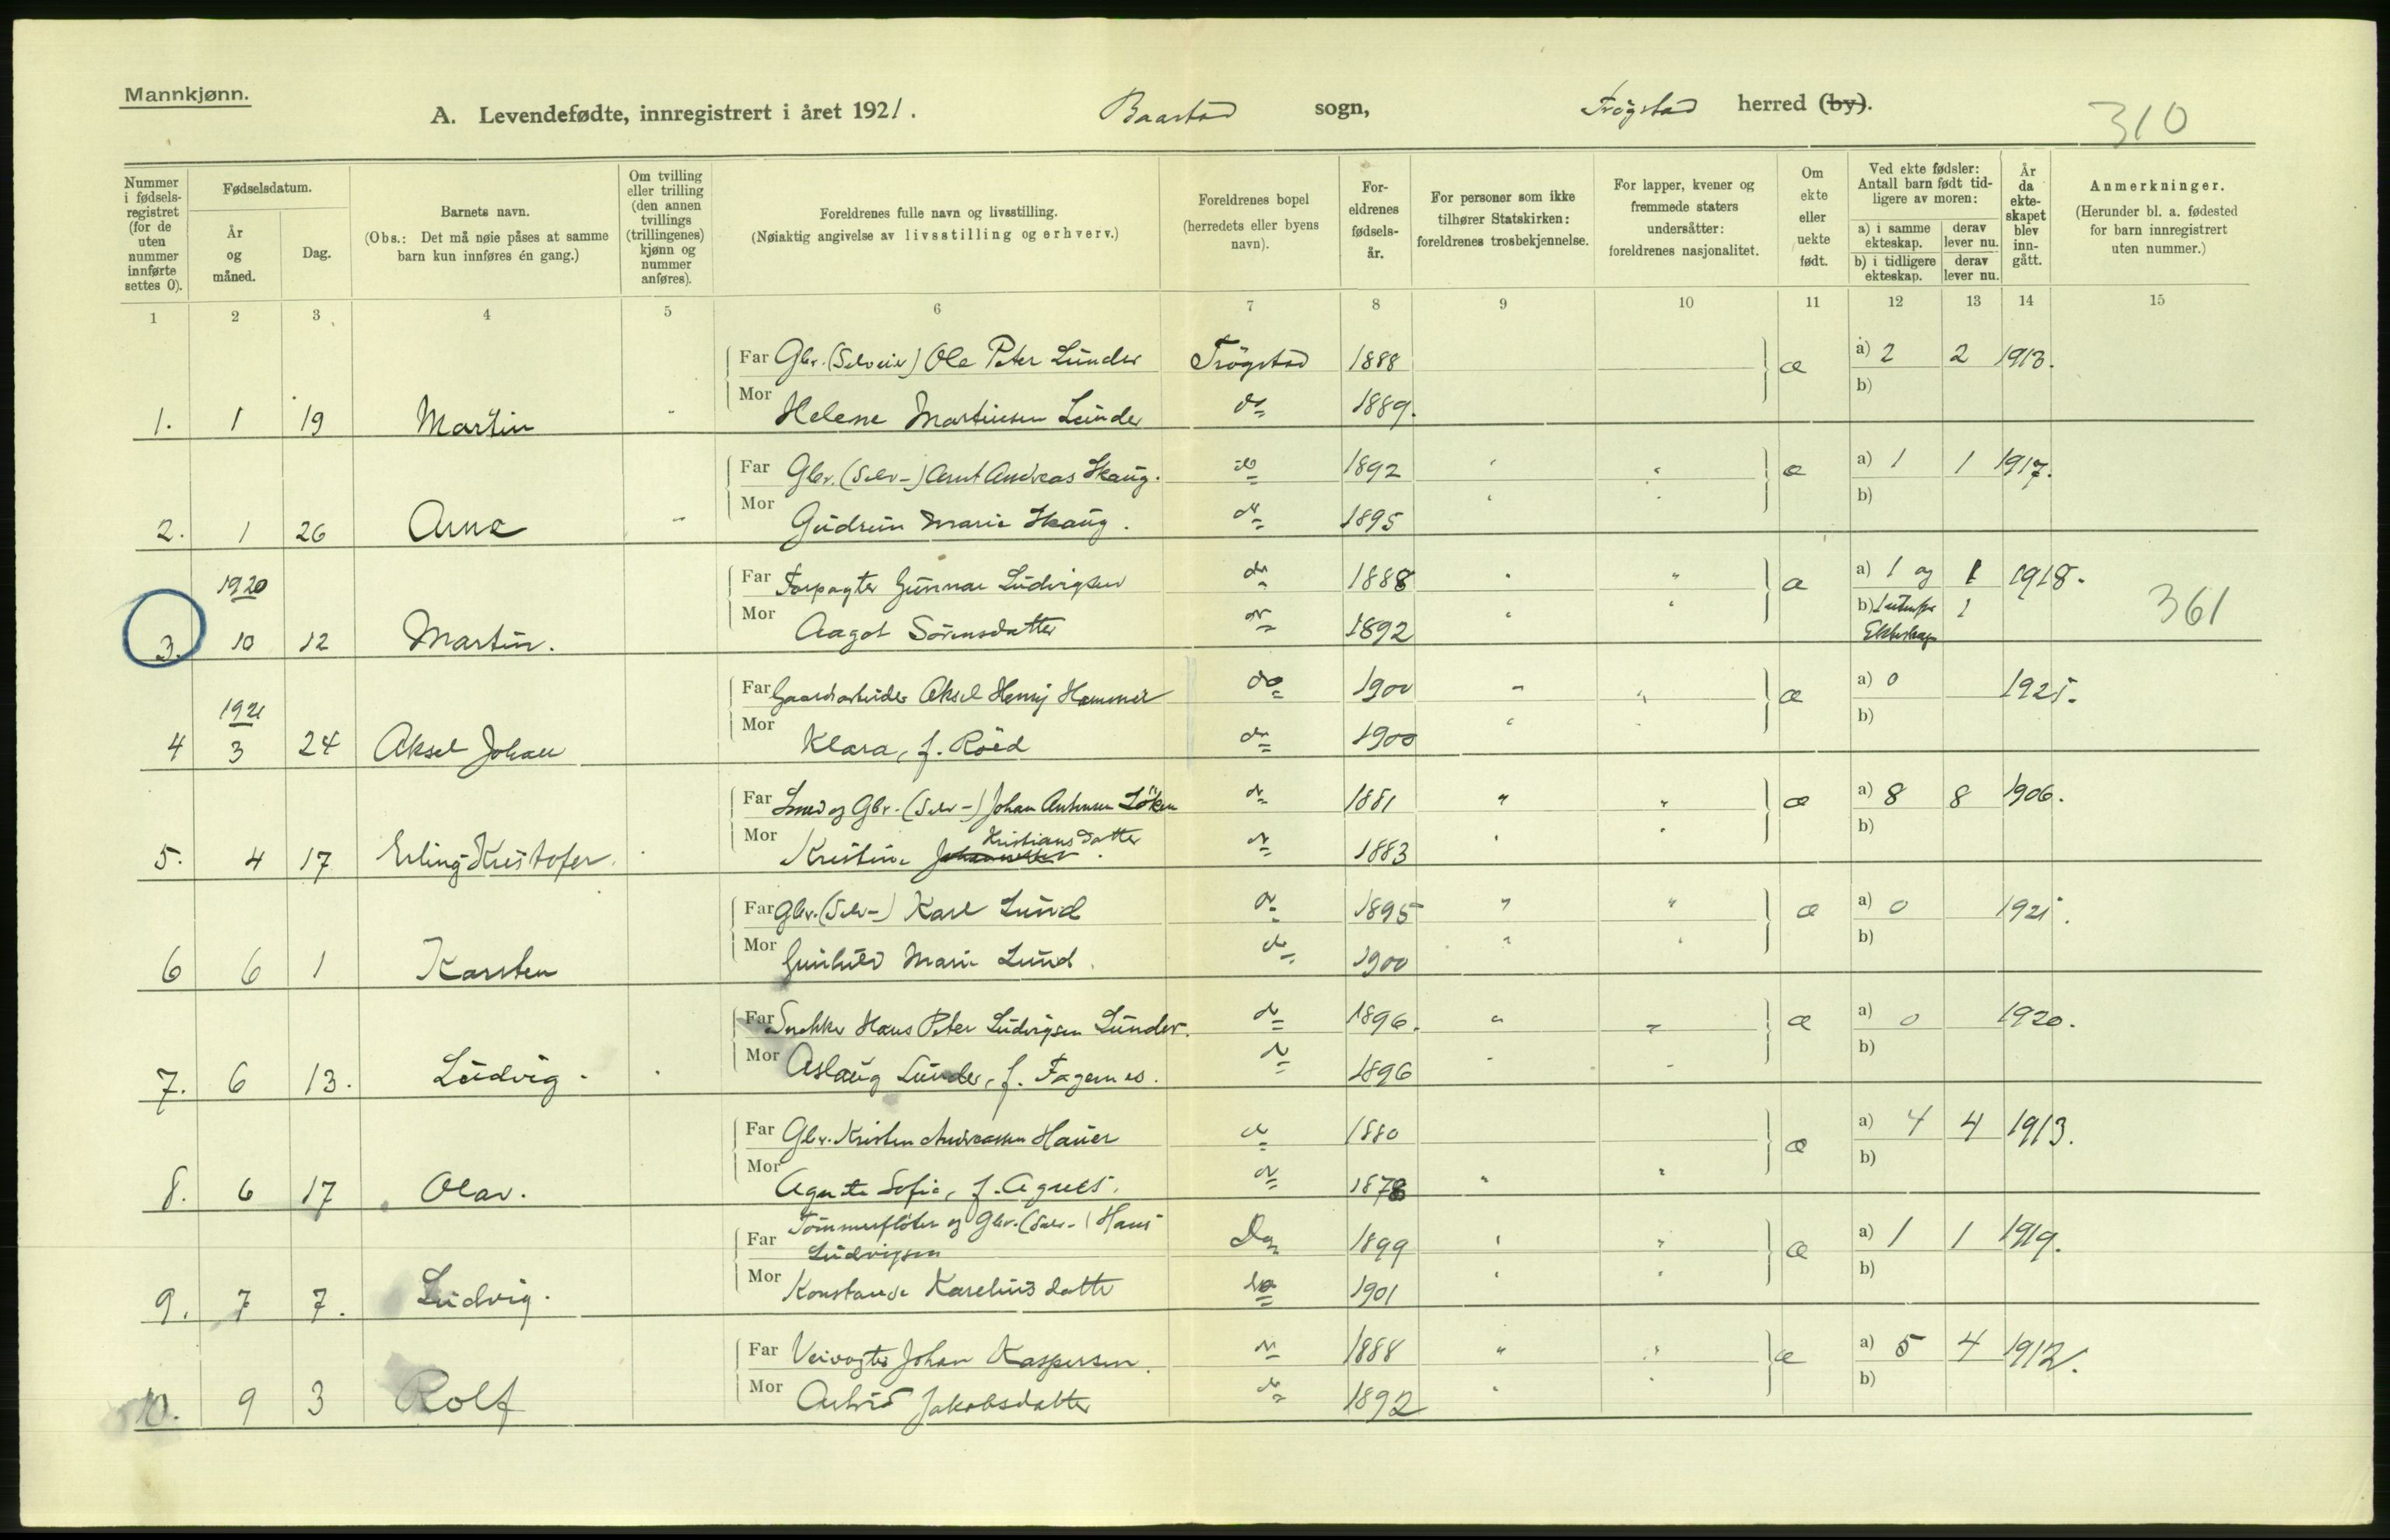 Mannkjønn.
A. Levendefødte, innregistrert i året 1921. Baastad sogn, Trøgstad herred (by).
310
Nummer i fødsels-registret (for de uten nummer innførte settes 0).
Fødselsdatum.
År og måned.
Dag.
Barnets navn.
(Obs.: Det må nøie påses at samme barn kun innføres én gang.)
Om tvilling eller trilling (den annen tvillings (trillingenes) kjønn og nummer anføres).
Foreldrenes fulle navn og livsstilling.
(Nøiaktig angivelse av livsstilling og erhverv.)
Foreldrenes bopel (herredets eller byens navn).
For-eldrenes fødsels-år.
For personer som ikke tilhører Statskirken: foreldrenes trosbekjennelse.
For lapper, kvener og fremmede staters undersåtter: foreldrenes nasjonalitet.
Om ekte eller uekte født.
Ved ekte fødsler: Antall barn født tid-ligere av moren:
a) i samme ekteskap. derav lever nu.
b) i tidligere ekteskap. derav lever nu.
År da ekte-skapet blev inn-gått.
Anmerkninger.
(Herunder bl. a. fødested for barn innregistrert uten nummer.)
1 2 3 4 5 6 7 8 9 10 11 12 13 14 15
Far Gbr. (Selveier) Ole Peter Lunder Trögstad 1888 æ a) 2 2 1913.
1. 1 19 Martin Mor Helene Martinsen Lunder do 1889. b)
Far Gbr. (Selv-) Arnt Andreas Skaug. do 1892 æ a) 1 1 1917.
2. 1 26 Arne Mor Gudrun Marie Skaug. do 1895 b)
1920 Far Forpagter Gunnar Ludvigsen do 1888 " æ a) 1 og 1 1918.
3. 10 12 Martin. Mor Aagot Sörensdatter do 1892 b) 1 1 361
Ekteskap
1921 Far Gaardsarbeider Aksel Henry Hammer do 1900 " " æ a) 0 1921.
4 3 24 Aksel Johan Mor Klara, f. Röed do 1900 b)
Far Smed og Gbr. (Selv-) Johan Antonsen Löken do 1881 " " æ a) 8 8 1906.
5. 4 17 Erling Kristofer. Mor Kristine Kristiansdatter do 1883 b)
Far Gbr. (Selv-) Karl Lund do 1895 " " æ a) 0 1921.
6 6 1 Karsten Mor Gunhild Marie Lund. do 1900 b)
Far Snekker Hans Peter Ludvigsen Lunder. do 1896. " " æ a) 0 1920.
7. 6 13. Ludvig. Mor Aslaug Lunder, f. Fagernes. do 1896 b)
Far Gbr. Kristen Andreassen Hauer do 1880 æ a) 4 4 1913.
8. 6 17 Olav. Mor Agnete Sofie, f. do 1878 " " b)
Far Tömmerflöter og Gbr. (Selv-) Hans Ludvigsen Do 1899 " æ a) 1 1 1919.
9. 7 7. Ludvig. Mor Konstanse Kareliusdatter do 1901 b)
Far Veivogter Johan Kaspersen. do 1888 " " æ a) 5 4 1912.
10. 9 3 Rolf Mor Astrid Jakobsdatter do 1892 b)